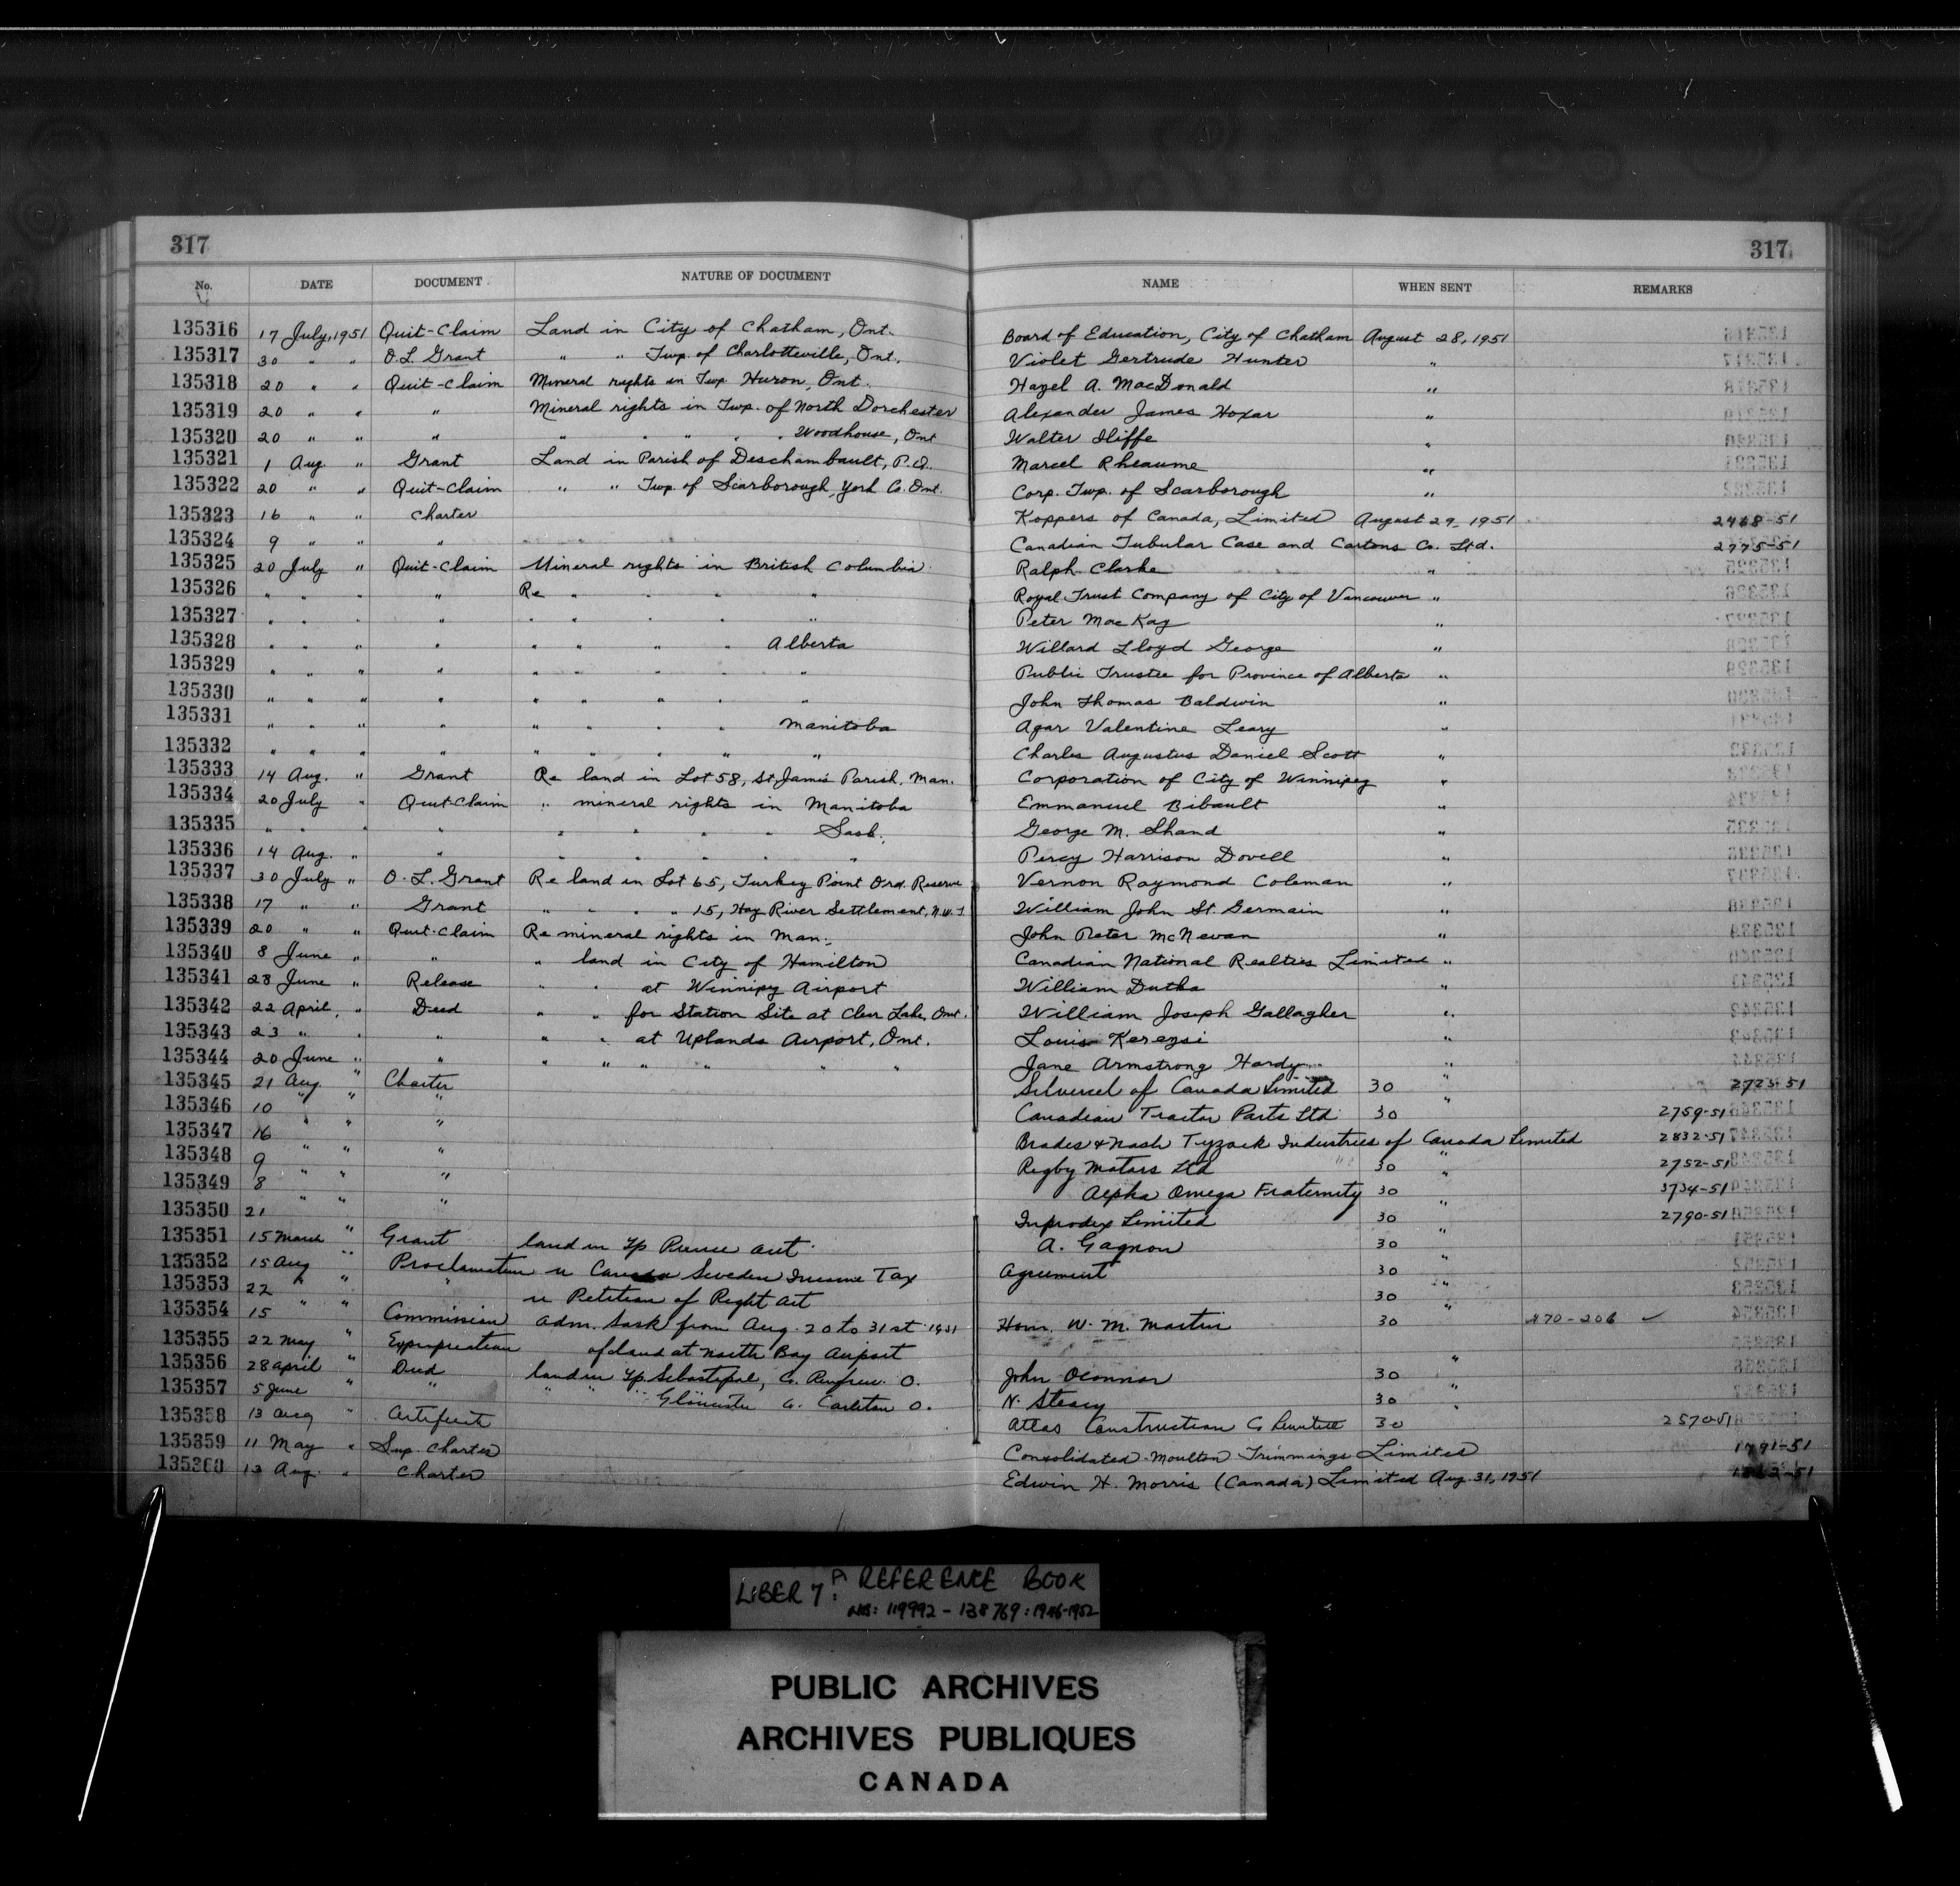 317 317
No. DATE DOCUMENT NATURE OF DOCUMENT NAME WHEN SENT REMARKS
135316 17 July, 1951 Quit-Claim Land in City of Chatham, Ont. Board of Education, City of Chatham August 28, 1951
135317 30 " " O.L. Grant " " Twp. of Charlotteville, Ont. Violet Gertrude Hunter "
135318 20 " " Quit-Claim Mineral rights in Twp. Huron, Ont. Hazel A. MacDonald "
135319 20 " " " Mineral rights in Twp. of North Dorchester Alexander James Hoxar "
135320 20 " " " " " " " " Woodhouse, Ont Walter Iliffe "
135321 1 Aug. " Grant Land in Parish of Deschambault, P.Q. Marcel Rheaume "
135322 20 " " Quit-Claim " " Twp. of Scarborough, York Co. Ont. Corp. Twp. of Scarborough "
135323 16 " " Charter Koppers of Canada, Limited August 29, 1951 2468-51
135324 9 " " " Canadian Tubular Case and Cartons Co. Ltd. 2775-51
135325 20 July " Quit-Claim Mineral rights in British Columbia Ralph Clarke "
135326 " " " " Re " " " " Royal Trust Company of City of Vancouver "
135327 " " " " " " " " " Peter MacKay "
135328 " " " " " " " " Alberta Willard Lloyd George "
135329 " " " " " " " " " Public Trustee for Province of Alberta "
135330 " " " " " " " " " John Thomas Baldwin "
135331 " " " " " " " " Manitoba Agar Valentine Leary "
135332 " " " " " " " " " Charles Augustus Daniel Scott "
135333 14 Aug. " Grant Re land in Lot 58, St. James Parish, Man. Corporation of City of Winnipeg "
135334 20 July " Quit-Claim " mineral rights in Manitoba Emmanuel Bibault "
135335 " " " " " " " " Sask. George M. Shand "
135336 14 Aug. " " " " " " " Percy Harrison Dovell "
135337 30 July " O.L. Grant Re land in Lot 65, Turkey Point Ord. Reserve Vernon Raymond Coleman "
135338 17 " " Grant " " " " 15, Hay River Settlement, N.W.T. William John St. Germain "
135339 20 " " Quit-Claim Re mineral rights in Man. John Peter McNevan "
135340 8 June " " " land in City of Hamilton Canadian National Realties Limited "
135341 28 June " Release " " at Winnipeg Airport William Dutka "
135342 22 April, " Deed " " for Station Site at Clear Lake, Ont. William Joseph Gallagher "
135343 23 " " " " " at Uplands Airport, Ont. Louis Keregsi "
135344 20 June " " " " " " " " Jane Armstrong Hardy "
135345 21 Aug. " Charter Silvercel of Canada Limited 30 " 2723-51
135346 10 " " " Canadian Tractor Parts Ltd 30 " 2759-51
135347 16 " " " Brades & Nash Tyzack Industries of Canada Limited 2832-51
135348 9 " " " Rigby Motors Ltd 30 " 2752-51
135349 8 " " " Alpha Omega Fraternity 30 " 3734-51
135350 21 " " " Inprodex Limited 30 " 2790-51
135351 15 March " Grant land in Tp Ont. A. Gagnon 30 "
135352 15 Aug " Proclamation re Canada Sweden Income Tax Agreement 30 "
135353 22 " " " re Petition of Right Act 30 "
135354 15 " " Commission Adm. Sask from Aug. 20 to 31st 1951 Hon. W. M. Martin 30 " 470-206 ✓
135355 22 May " Expropriation of land at North Bay Airport
135356 28 April " Deed land in Tp. Sebastopol, Co. Renfrew O. John OConnor 30 "
135357 5 June " " " " " Gloucester Co. Carleton O. N. Steacy 30 "
135358 13 Aug " Certificate Atlas Construction Co Limited 30 " 2570-51
135359 11 May " Sup. Charter Consolidated Moulton Trimmings Limited 1791-51
135360 13 Aug. " Charter Edwin H. Morris (Canada) Limited Aug. 31, 1951
LIBER 7: A REFERENCE BOOK
NOS: 119992 - 138769 : 1946-1952
PUBLIC ARCHIVES
ARCHIVES PUBLIQUES
CANADA